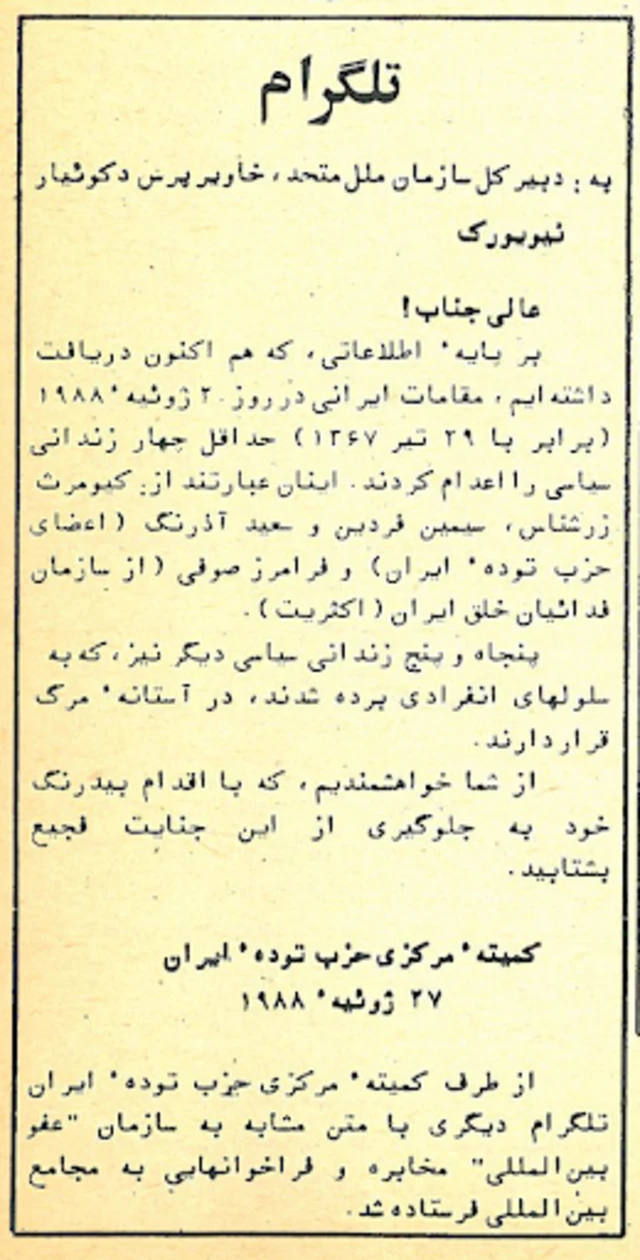 تلگرام
به: دبیر کل سازمان ملل متحد، خاویر پرس دکوئیار
نیویورک
عالی جناب!
بر پایهٔ اطلاعاتی، که هم اکنون دریافت
داشته‌ایم، مقامات ایرانی در روز ۲۰ ژوئیهٔ ۱۹۸۸
(برابر با ۲۹ تیر ۱۳۶۷) حداقل چهار زندانی
سیاسی را اعدام کردند. اینان عبارتند از: کیومرث
زرشناس، سیمین فردین و سعید آذرنگ (اعضای
حزب تودهٔ ایران) و فرامرز صوفی (از سازمان
فدائیان خلق ایران (اکثریت).
پنجاه و پنج زندانی سیاسی دیگر نیز، که به
سلولهای انفرادی برده شدند، در آستانهٔ مرگ
قرار دارند.
از شما خواهشمندیم، که با اقدام بیدرنگ
خود به جلوگیری از این جنایت فجیع
بشتابید.
کمیتهٔ مرکزی حزب تودهٔ ایران
۲۷ ژوئیهٔ ۱۹۸۸
از طرف کمیتهٔ مرکزی حزب تودهٔ ایران
تلگرام دیگری با متن مشابه به سازمان "عفو
بین‌المللی" مخابره و فراخوانهایی به مجامع
بین‌المللی فرستاده شد.